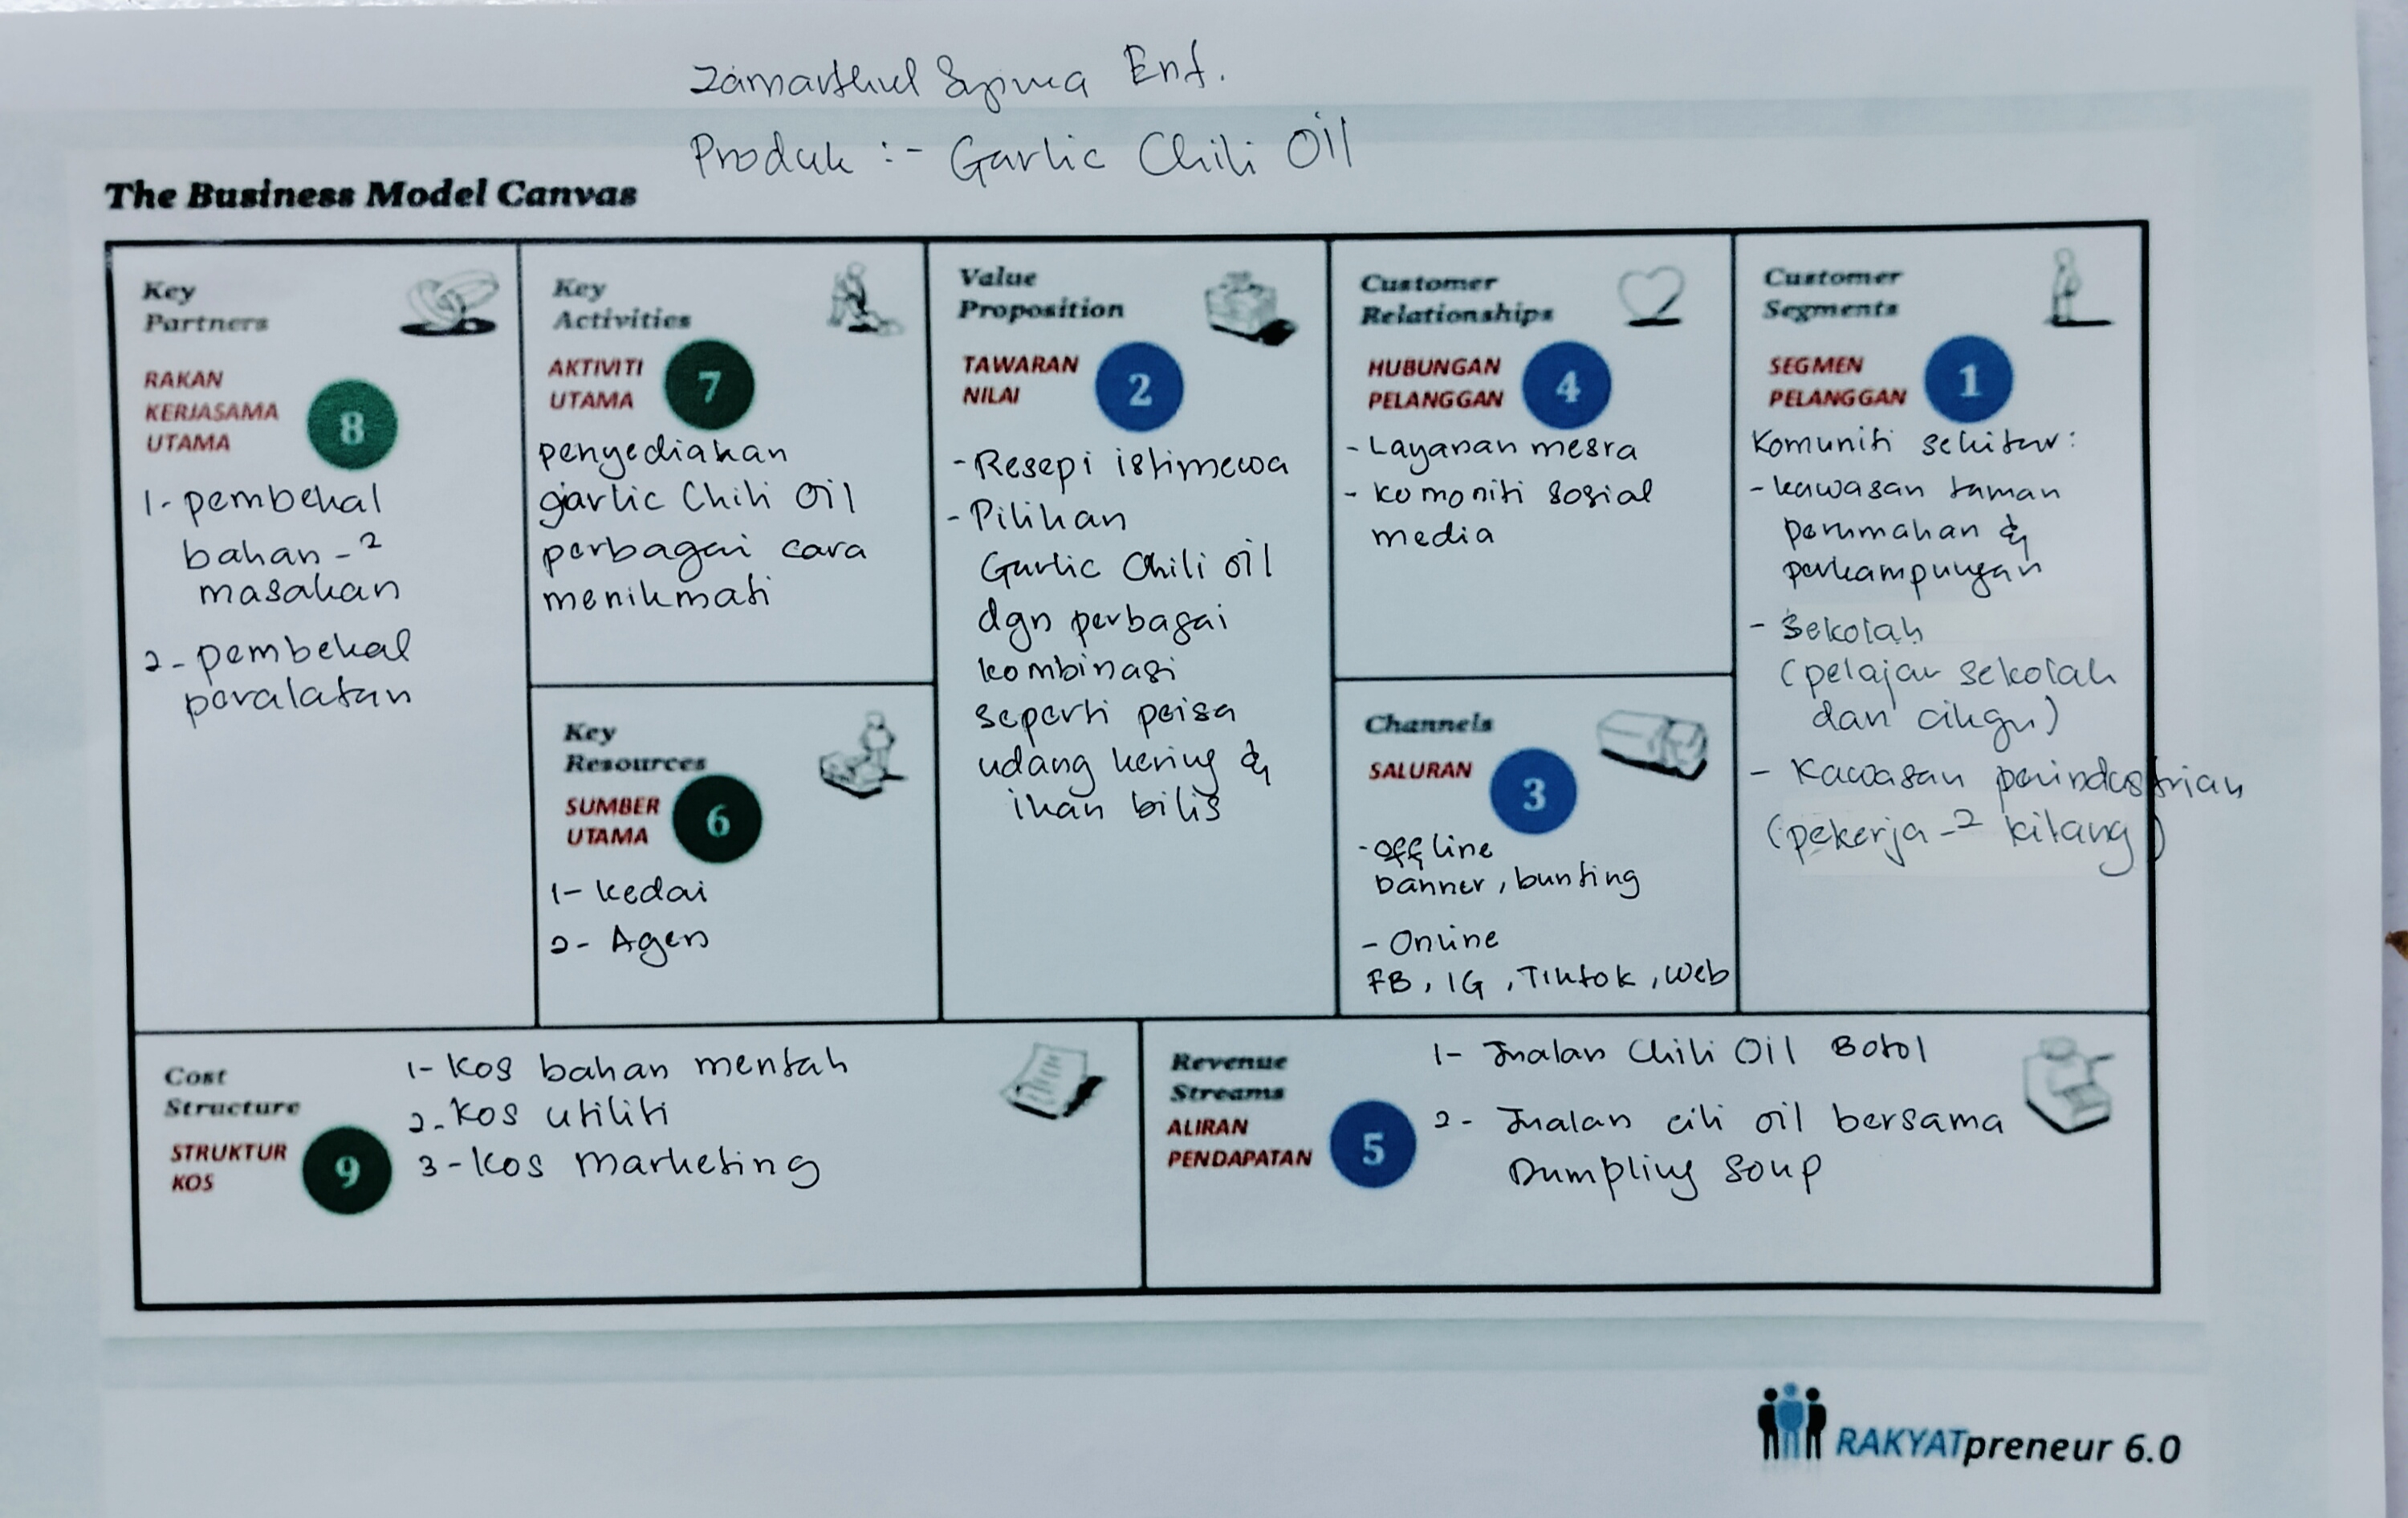 Ent.
Produk :- Garlic Chili Oil
The Business Model Canvas
Key
Partners
RAKAN
KERJASAMA
UTAMA
8
1- pembekal
bahan-2
masakan
2- pembekal
peralatan
Key
Activities
AKTIVITI
UTAMA
7
penyediakan
garlic Chili Oil
perbagai cara
menikmati
Key
Resources
SUMBER
UTAMA
6
1- kedai
2- Agen
Value
Proposition
TAWARAN
NILAI
2
- Resepi istimewa
- Pilihan
Garlic Chili oil
dgn perbagai
kombinasi
seperti perisa
udang kering &
ikan bilis
Customer
Relationships
HUBUNGAN
PELANGGAN
4
- Layanan mesra
- komoniti sosial
media
Channels
SALURAN
3
- offline
banner, bunting
- Online
FB, IG, Tiktok, web
Customer
Segments
SEGMEN
PELANGGAN
1
Komuniti sekitar:
- kawasan taman
perumahan &
perkampungan
- sekolah
(pelajar sekolah
dan cikgu)
- Kawasan perindustrian
(pekerja-2 kilang)
Cost
Structure
STRUKTUR
KOS
9
1- kos bahan mentah
2- kos utiliti
3- kos marketing
Revenue
Streams
ALIRAN
PENDAPATAN
5
1- Jualan Chili Oil Botol
2- Jualan cili oil bersama
Dumpling soup
RAKYATpreneur 6.0